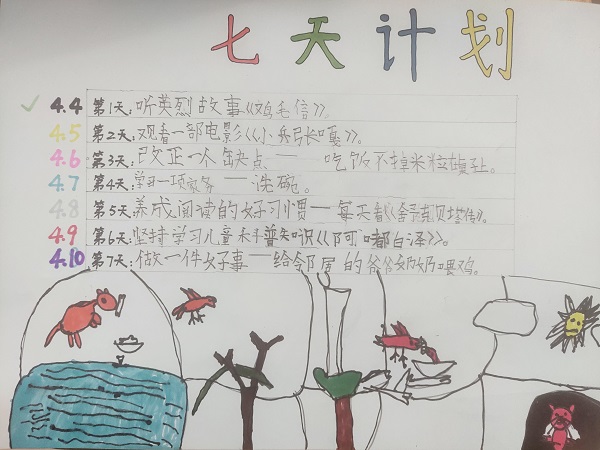 七天计划
4.4 第1天:听英烈故事《鸡毛信》。
4.5 第2天:观看一部电影《小兵张嘎》。
4.6 第3天:改正一个缺点——吃饭不掉米粒在桌上。
4.7 第4天:学习一项家务——洗碗。
4.8 第5天:养成阅读的好习惯——每天看《舒克贝塔传》。
4.9 第6天:坚持学习儿童科普知识《阿嘟白泽》。
4.10 第7天:做一件好事——给邻居的爷爷奶奶喂鸡。